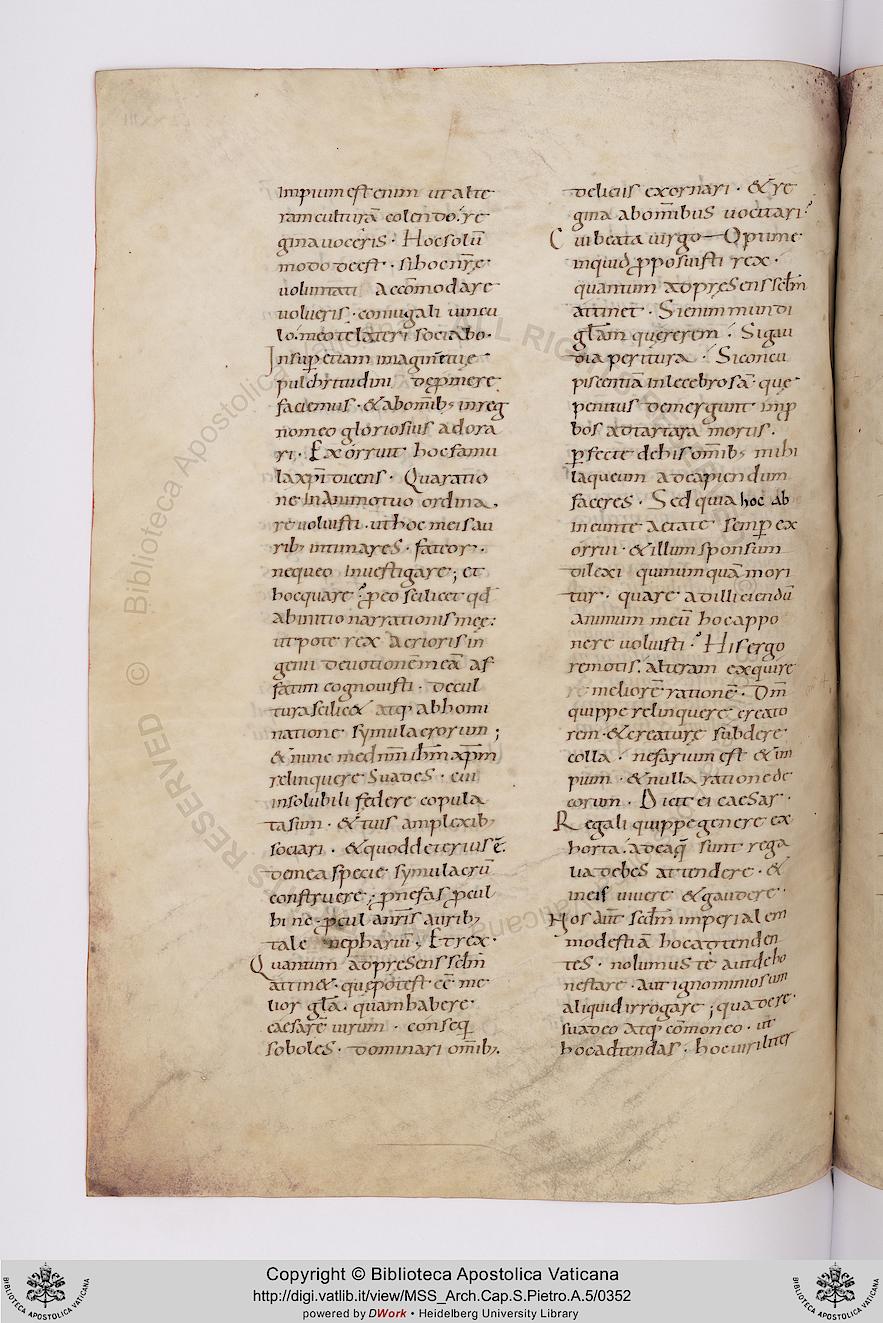 impium est enim ut alte
ram culturā colendo. re
gina voceris. Hoc solū
modo deest. si hoc nr̄ę
voluntati accōmodare
volueris. coniugali vincu
lo. meo te lateri sociabo.
Insup etiam imaginē tuę
pulchritudini depmere
faciemus. & ab omīb; in reg
no meo gloriosius adora
ri. Exorruit hoc famu
la xp̄i dicens. Qua ratio
ne in animo tuo ordina
re voluisti. ut hoc meis au
rib; intimares. fateor.
nequeo investigare; et
hoc quare? ꝓ eo scilicet qđ
ab initio narrationis meę:
utpote rex acrioris in
genii devotionē meā af
fatim cognovisti. de cul
tura scilic& atq; abhomi
natione symulacrorum;
& nunc me dn̄m ih̄m xp̄m
relinquere suades. cui
insolubili federe copula
ta sum. & tuis amplexib;
sociari. & quod deterius ē.
de mea specie symulacrū
construere; ꝓ nefas ꝓcul
hinc. ꝓcul a nr̄is aurib;
tale nepharium. Et rex.
Quantum ad presens sedm̄
attin&. quę potest eē me
lior gl̄a. quam habere
caesarē virum. conseq
soboles. dominari omīb;.
deliciis exornari. & re
gina ab omnibus vocitari?
Cui beata virgo Optime
inquid ꝓposuisti rex.
quantum ad pręsens sedm̄
attinet. Si enim mundi
gl̄am quererem. Si gau
dia peritura. Si concu
piscentiā inlecebrosā. quę
penitus demergunt imp
bos ad tartara mortis.
ꝑfecte de his omīb; mihi
laqueum ad capiendum
faceres. Sed quia hoc ab
ineunte aetate semp ex
orrui. & illum sponsum
dilexi qui numquā mori
tur. quare ad illiciendū
animum meū hoc appo
nere voluisti? His ergo
remotis. alteram exquire
meliorē rationē. Dm̄
quippe relinquere creato
rem. & creaturę subdere
colla. nefarium est & im
pium. & nulla ratione de
corum. Dicit ei caesar.
Regali quippe genere ex
horta. ad ea q̄ sunt rega
lia debes attendere. &
in eis vivere & gaudere.
Nos aut̄ sedm̄ imperialem
modestiā hoc adtenden
tes. nolumus te aut deho
nestare. aut ignominiosum
aliquid irrogare; qua de re.
suadeo atq; cōmoneo. ut
hoc adtendas. hoc viriliter
Copyright © Biblioteca Apostolica Vaticana
http://digi.vatlib.it/view/MSS_Arch.Cap.S.Pietro.A.5/0352
powered by DWork • Heidelberg University Library